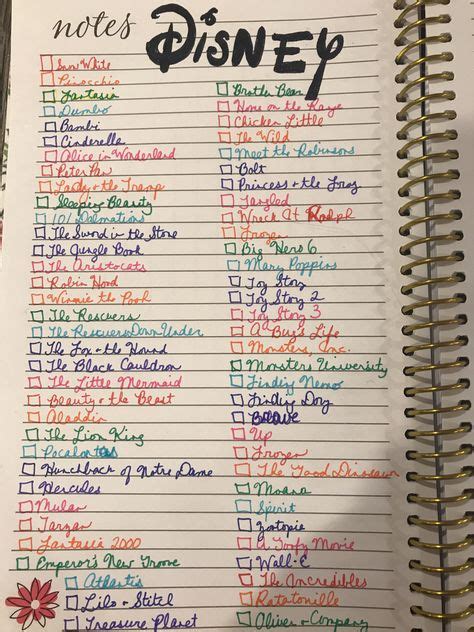 notes
Disney
Snow White
Pinocchio
Fantasia
Dumbo
Bambi
Cinderella
Alice in Wonderland
Peter Pan
Lady + the Tramp
Sleeping Beauty
101 Dalmations
The Sword in the Stone
The Jungle Book
The Aristocats
Robin Hood
Winnie the Pooh
The Rescuers
The Rescuers Down Under
The Fox + the Hound
The Black Cauldron
The Little Mermaid
Beauty + the Beast
Aladdin
The Lion King
Pocahontas
Hunchback of Notre Dame
Hercules
Mulan
Tarzan
Fantasia 2000
Emperor's New Groove
Atlantis
Lilo + Stitch
Treasure Planet
Brother Bear
Home on the Range
Chicken Little
The Wild
Meet the Robinsons
Bolt
Princess + the Frog
Tangled
Wreck It Ralph
Frozen
Big Hero 6
Mary Poppins
Toy Story
Toy Story 2
Toy Story 3
A Bug's Life
Monsters, Inc.
Monsters University
Finding Nemo
Finding Dory
Brave
Up
Frozen
The Good Dinosaur
Moana
Spirit
Zootopia
A Goofy Movie
Wall-E
The Incredibles
Ratatouille
Oliver + Company